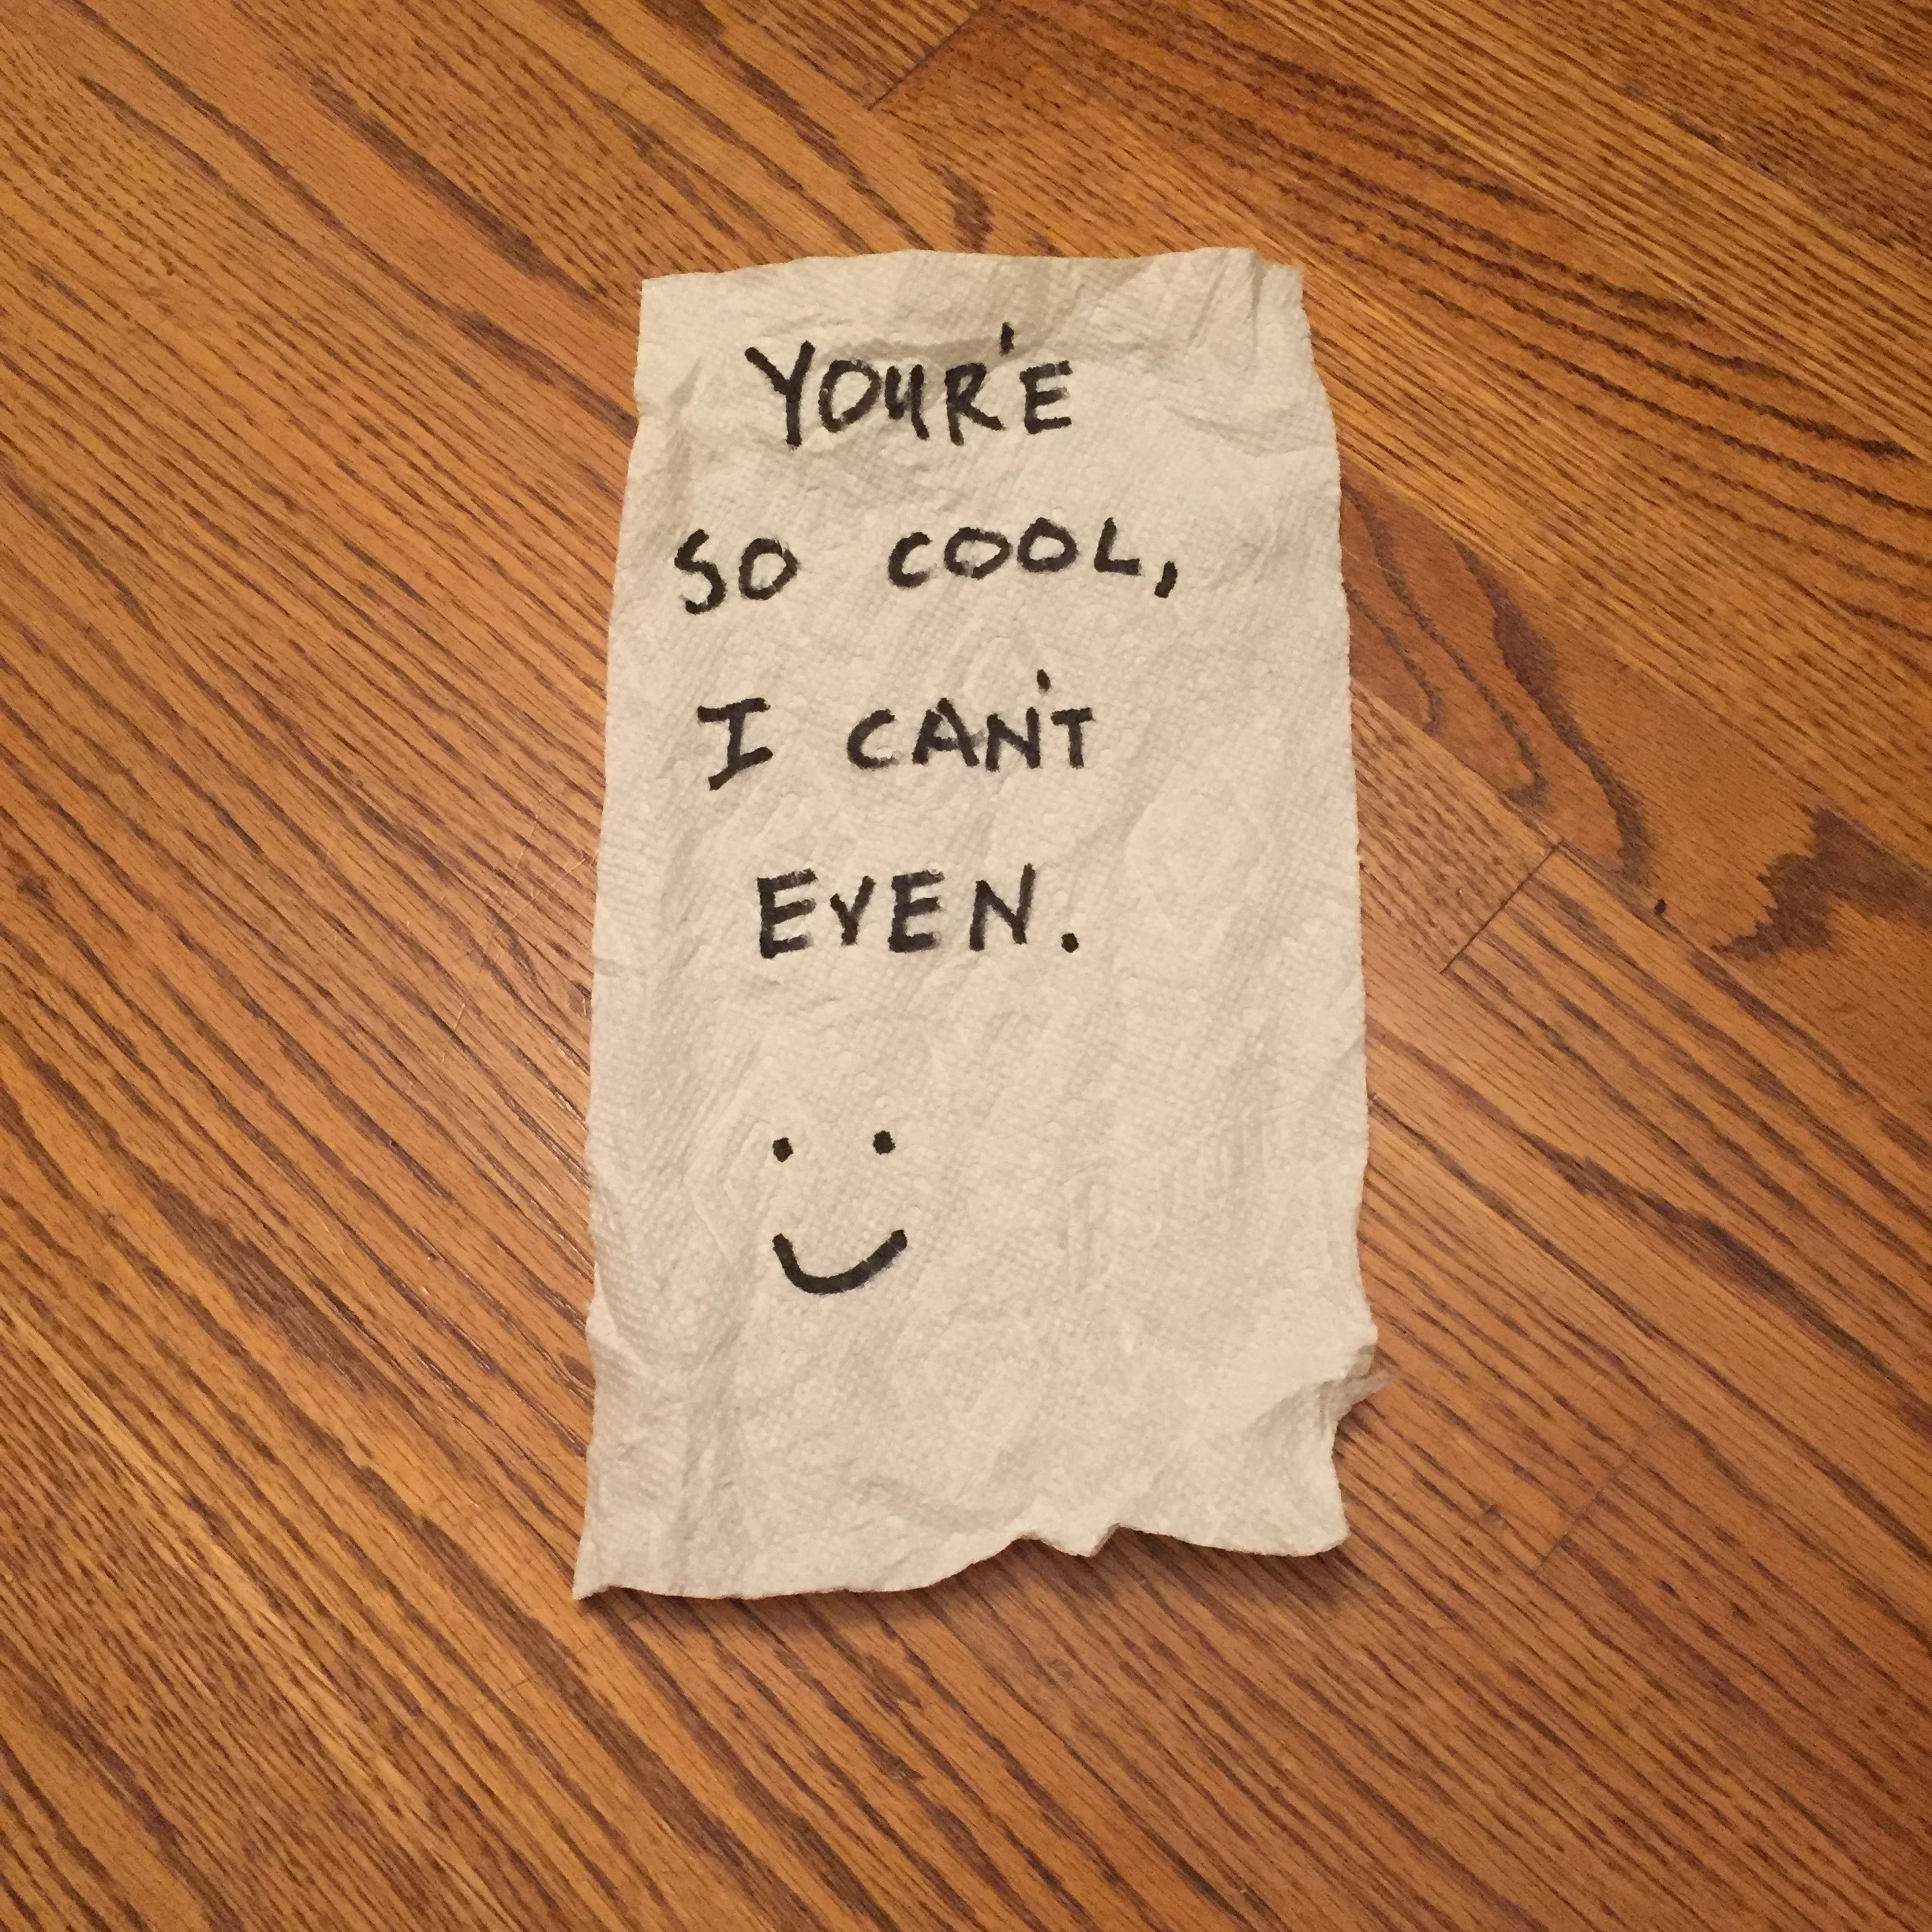 YOUR'E
SO COOL,
I CAN'T
EVEN.